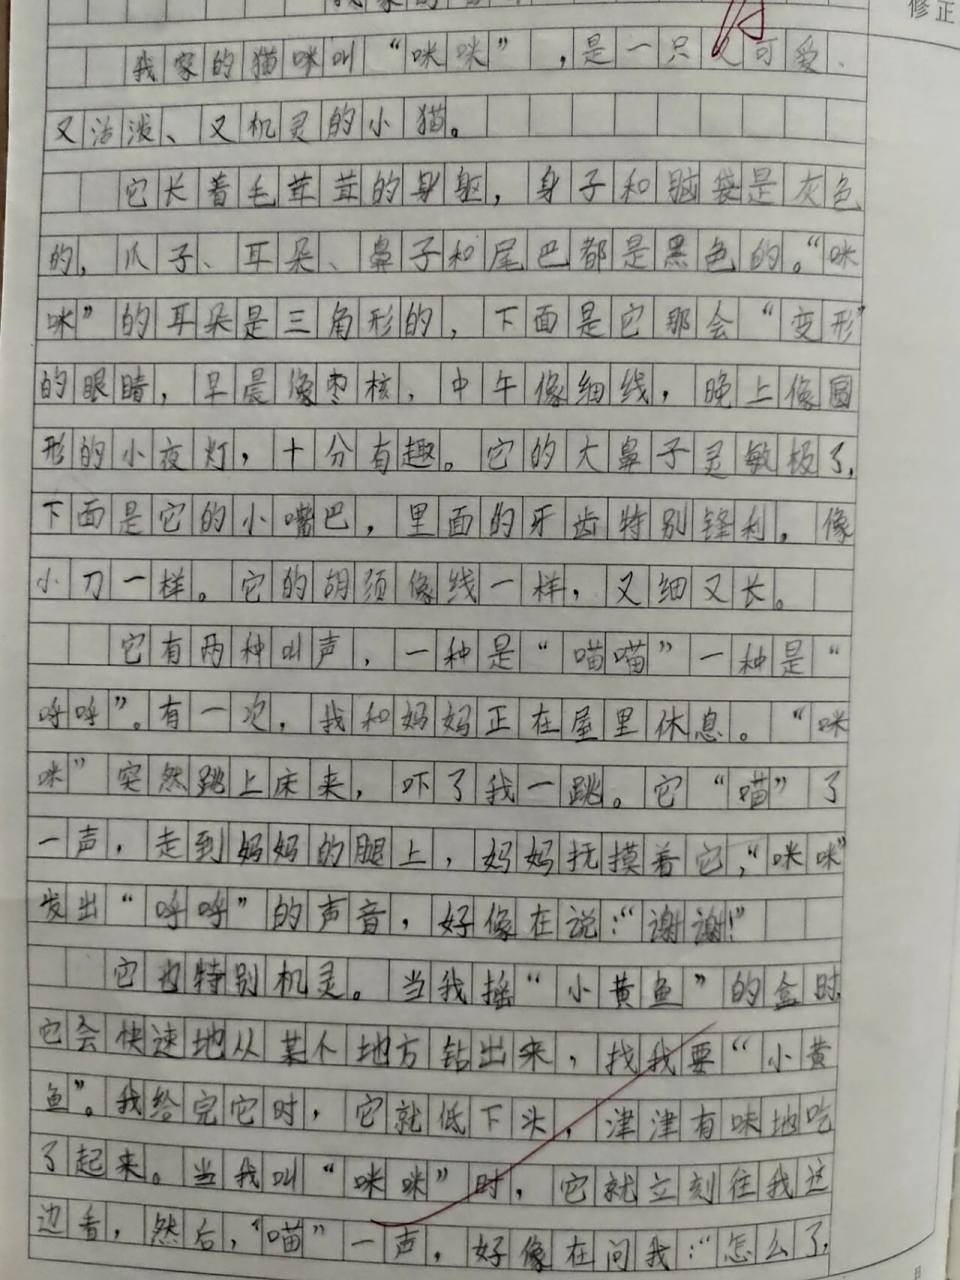 修正
我家的猫咪叫“咪咪”,是一只又可爱、
又活泼、又机灵的小猫。
它长着毛茸茸的身躯，身子和脑袋是灰色
的，爪子、耳朵、鼻子和尾巴都是黑色的。“咪
咪”的耳朵是三角形的，下面是它那会“变形”
的眼睛，早晨像枣核，中午像细线，晚上像圆
形的小夜灯，十分有趣。它的大鼻子灵敏极了，
下面是它的小嘴巴，里面的牙齿特别锋利，像
小刀一样。它的胡须像线一样，又细又长。
它有两种叫声，一种是“喵喵”一种是“
呼呼”。有一次，我和妈妈正在屋里休息。“咪
咪”突然跳上床来，吓了我一跳。它“喵”了
一声，走到妈妈的腿上，妈妈抚摸着它，“咪咪”
发出“呼呼”的声音，好像在说：“谢谢！”
它也特别机灵。当我摇“小黄鱼”的盒时，
它会快速地从某个地方钻出来，找我要“小黄
鱼”。我给完它时，它就低下头，津津有味地吃
了起来。当我叫“咪咪”时，它就立刻往我这
边看，然后，“喵”一声，好像在问我：“怎么了，